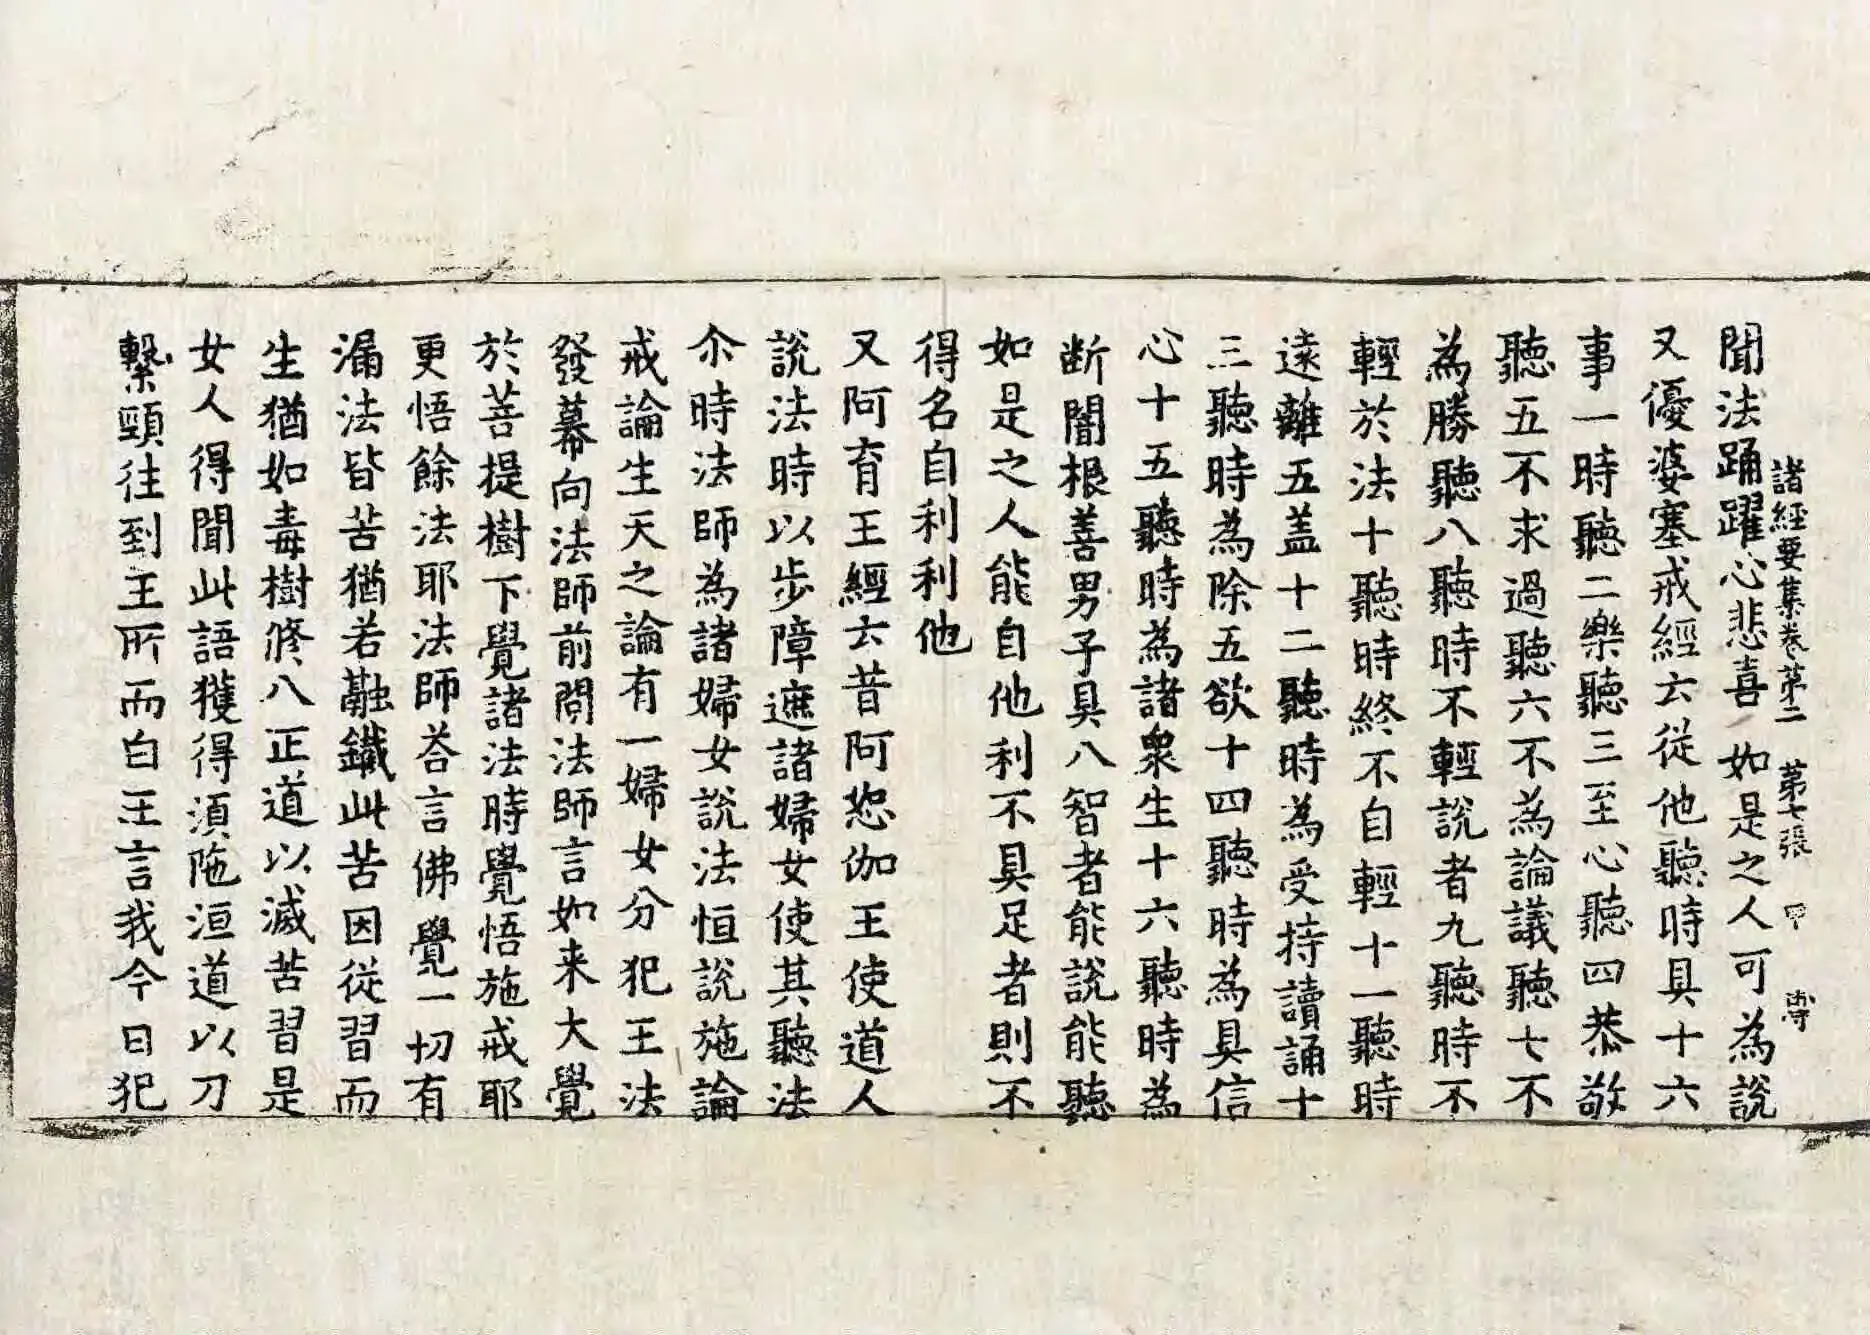 聞法踊躍心悲喜 如是之人可為說
諸經要集卷第二 第七張 甲
又優婆塞戒經云從他聽時具十六
事一時聽二樂聽三至心聽四恭敬
聽五不求過聽六不為論議聽七不
為勝聽八聽時不輕說者九聽時不
輕於法十聽時終不自輕十一聽時
遠離五盖十二聽時為受持讀誦十
三聽時為除五欲十四聽時為具信
心十五聽時為諸衆生十六聽時為
断闇根善男子具八智者能說能聽
如是之人能自他利不具足者則不
得名自利利他
又阿育王經云昔阿恕伽王使道人
說法時以步障遮諸婦女使其聽法
尒時法師為諸婦女說法恒說施論
戒論生天之論有一婦女分犯王法
發幕向法師前問法師言如来大覺
於菩提樹下覺諸法時覺悟施戒耶
更悟餘法耶法師荅言佛覺一切有
漏法皆苦猶若融鐵此苦因從習而
生猶如毒樹修八正道以滅苦習是
女人得聞此語獲得須陁洹道以刀
繫頸往到王所而白王言我今日犯